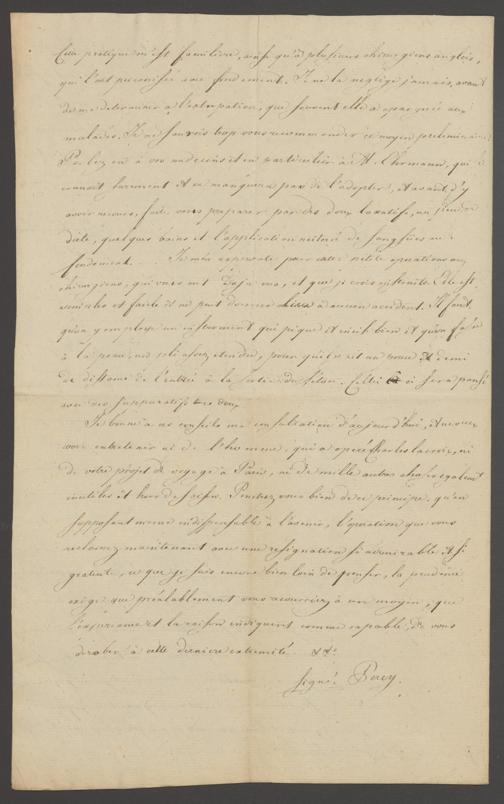 Cette pratique m'est familiere, ainsi qu'à plusieurs chirurgiens anglois,
qui l'ont préconisée avec fondement. Je ne la neglige jamais, avant
de me determiner à l'extirpation, que souvent elle a epargnée aux
malades. Je ne sçaurois trop vous recommander ce moyen preliminaire
Parlez en à vos medecins et en particulier à M. Ehrmann, qui le
connoit surement et ne manquera pas de l'adopter, et avant d'y
avoir recours, faites vous preparer par des doux laxatifs, un peu de
diete, quelques bains et l'application réiterée de sangsues au
fondement. Je m'en rapporte pour cette petite operation au
chirurgien, qui vous ont deja vu, et que je crois instruits. Elle est
simple et facile et ne peut donner lieu à aucun accident. Il faut
qu'on y employe un instrument qui pique et incise bien et qu'on fasse
à la peau, un pli assez étendu, pour qu'il y ait un pouce et demi
de distance de l'entrée à la sortie du séton. Celui ci sera pansé
avec des suppuratifs doux
Je borne à ces conseils ma consultation d'aujourd'hui, et ne veux
vous entretenir ni de l'homme, qui a operé Charles lacroix, ni
de votre projet de voyage à Paris, ni de mille autres choses egalement
inutiles et hors de saison. Penetrez vous bien de ce principe, qu'en
supposant meme indispensable à l'avenir, l'operation que vous
reclamez maintenant avec une resignation si admirable et si
gratuite, ce que je suis encore bien loin de penser, la prudence
exige que préalablement vous recourriez à un moyen, que
l'experience et la raison indiquent comme capable de vous
derober à cette derniere extremité. &c.
signé Percy.